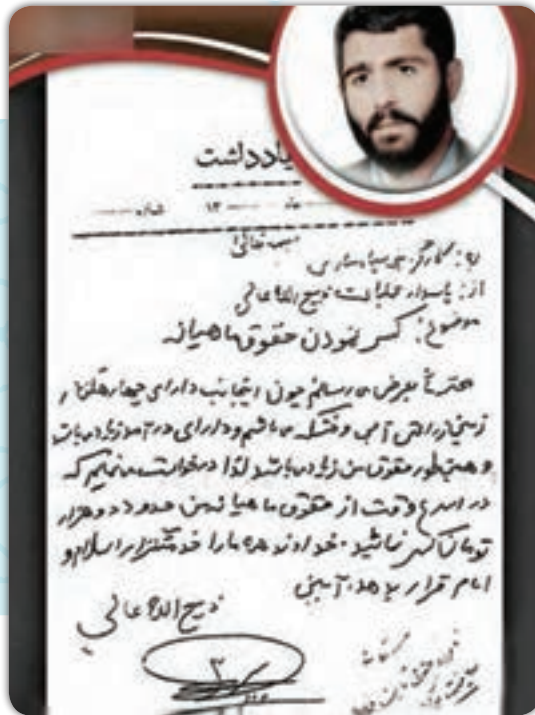 یادداشت
شماره ــــ ۱۳ ــــ
بسمه تعالی
به: کارگزینی سپاه ساری
از: پاسدار عملیات ذبیح الله عالی
موضوع: کسر نمودن حقوق ماهیانه
محترماً بعرض می‌رسانم چون اینجانب دارای چهار هکتار
زمین زراعتی آبی و خشکه می‌باشم و دارای درآمد زیاد می‌باشد
و همینطور حقوق من زیاد می‌باشد لذا درخواست می‌نمایم که
در اسرع وقت از حقوق ماهیانه من حدود دو هزار
تومان کسر نمائید. خداوند همه ما را خدمتگزار اسلام و
امام قرار بدهد. آمین
ذبیح الله عالی